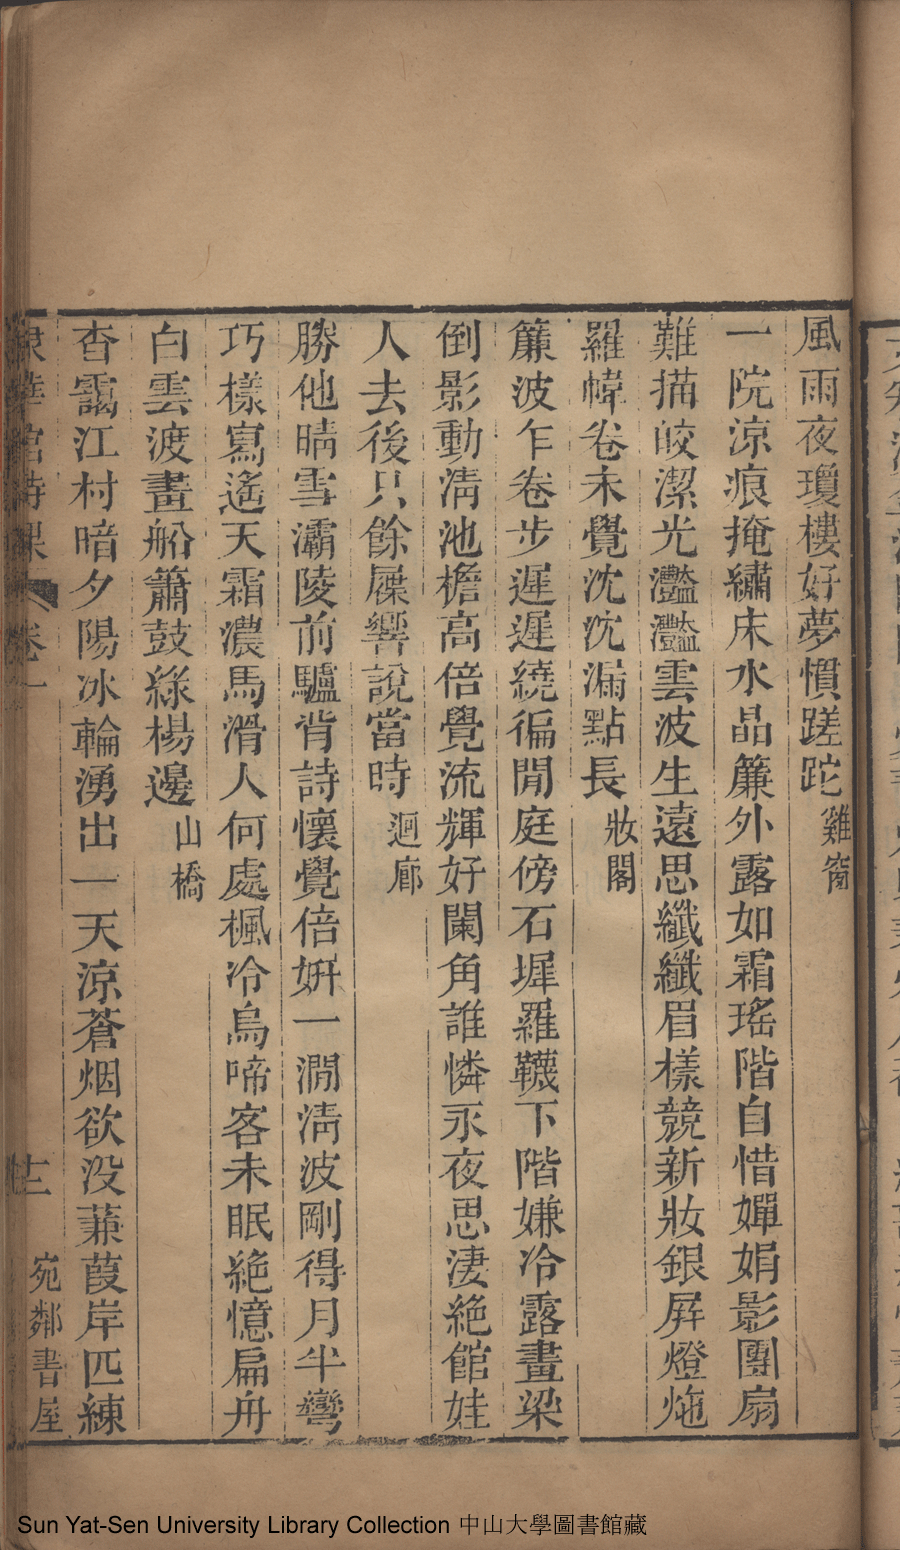 風雨夜瓊樓好夢慣蹉跎雞窗
一院涼痕掩繡床水晶簾外露如霜瑤階自惜嬋娟影團扇
難描皎潔光灩灩雲波生遠思纖纖眉樣競新妝銀屛燈炧
羅幃卷未覺沈沈漏點長妝閣
簾波乍卷步遲遲繞徧閒庭傍石墀羅韈下階嫌冷露畫梁
倒影動淸池檐高倍覺流輝好闌角誰憐永夜思淒絶館娃
人去後只餘屧響說當時迴廊
勝他晴雪灞陵前驢背詩懷覺倍姸一澗淸波剛得月半彎
巧樣寫遙天霜濃馬滑人何處楓冷烏啼客未眠絶憶扁舟
白雲渡畫船簫鼓綠楊邊山橋
杳靄江村暗夕陽冰輪湧出一天涼蒼烟欲没蒹葭岸匹練
館詩課 卷一 十二 宛鄰書屋
Sun Yat-Sen University Library Collection 中山大學圖書館藏